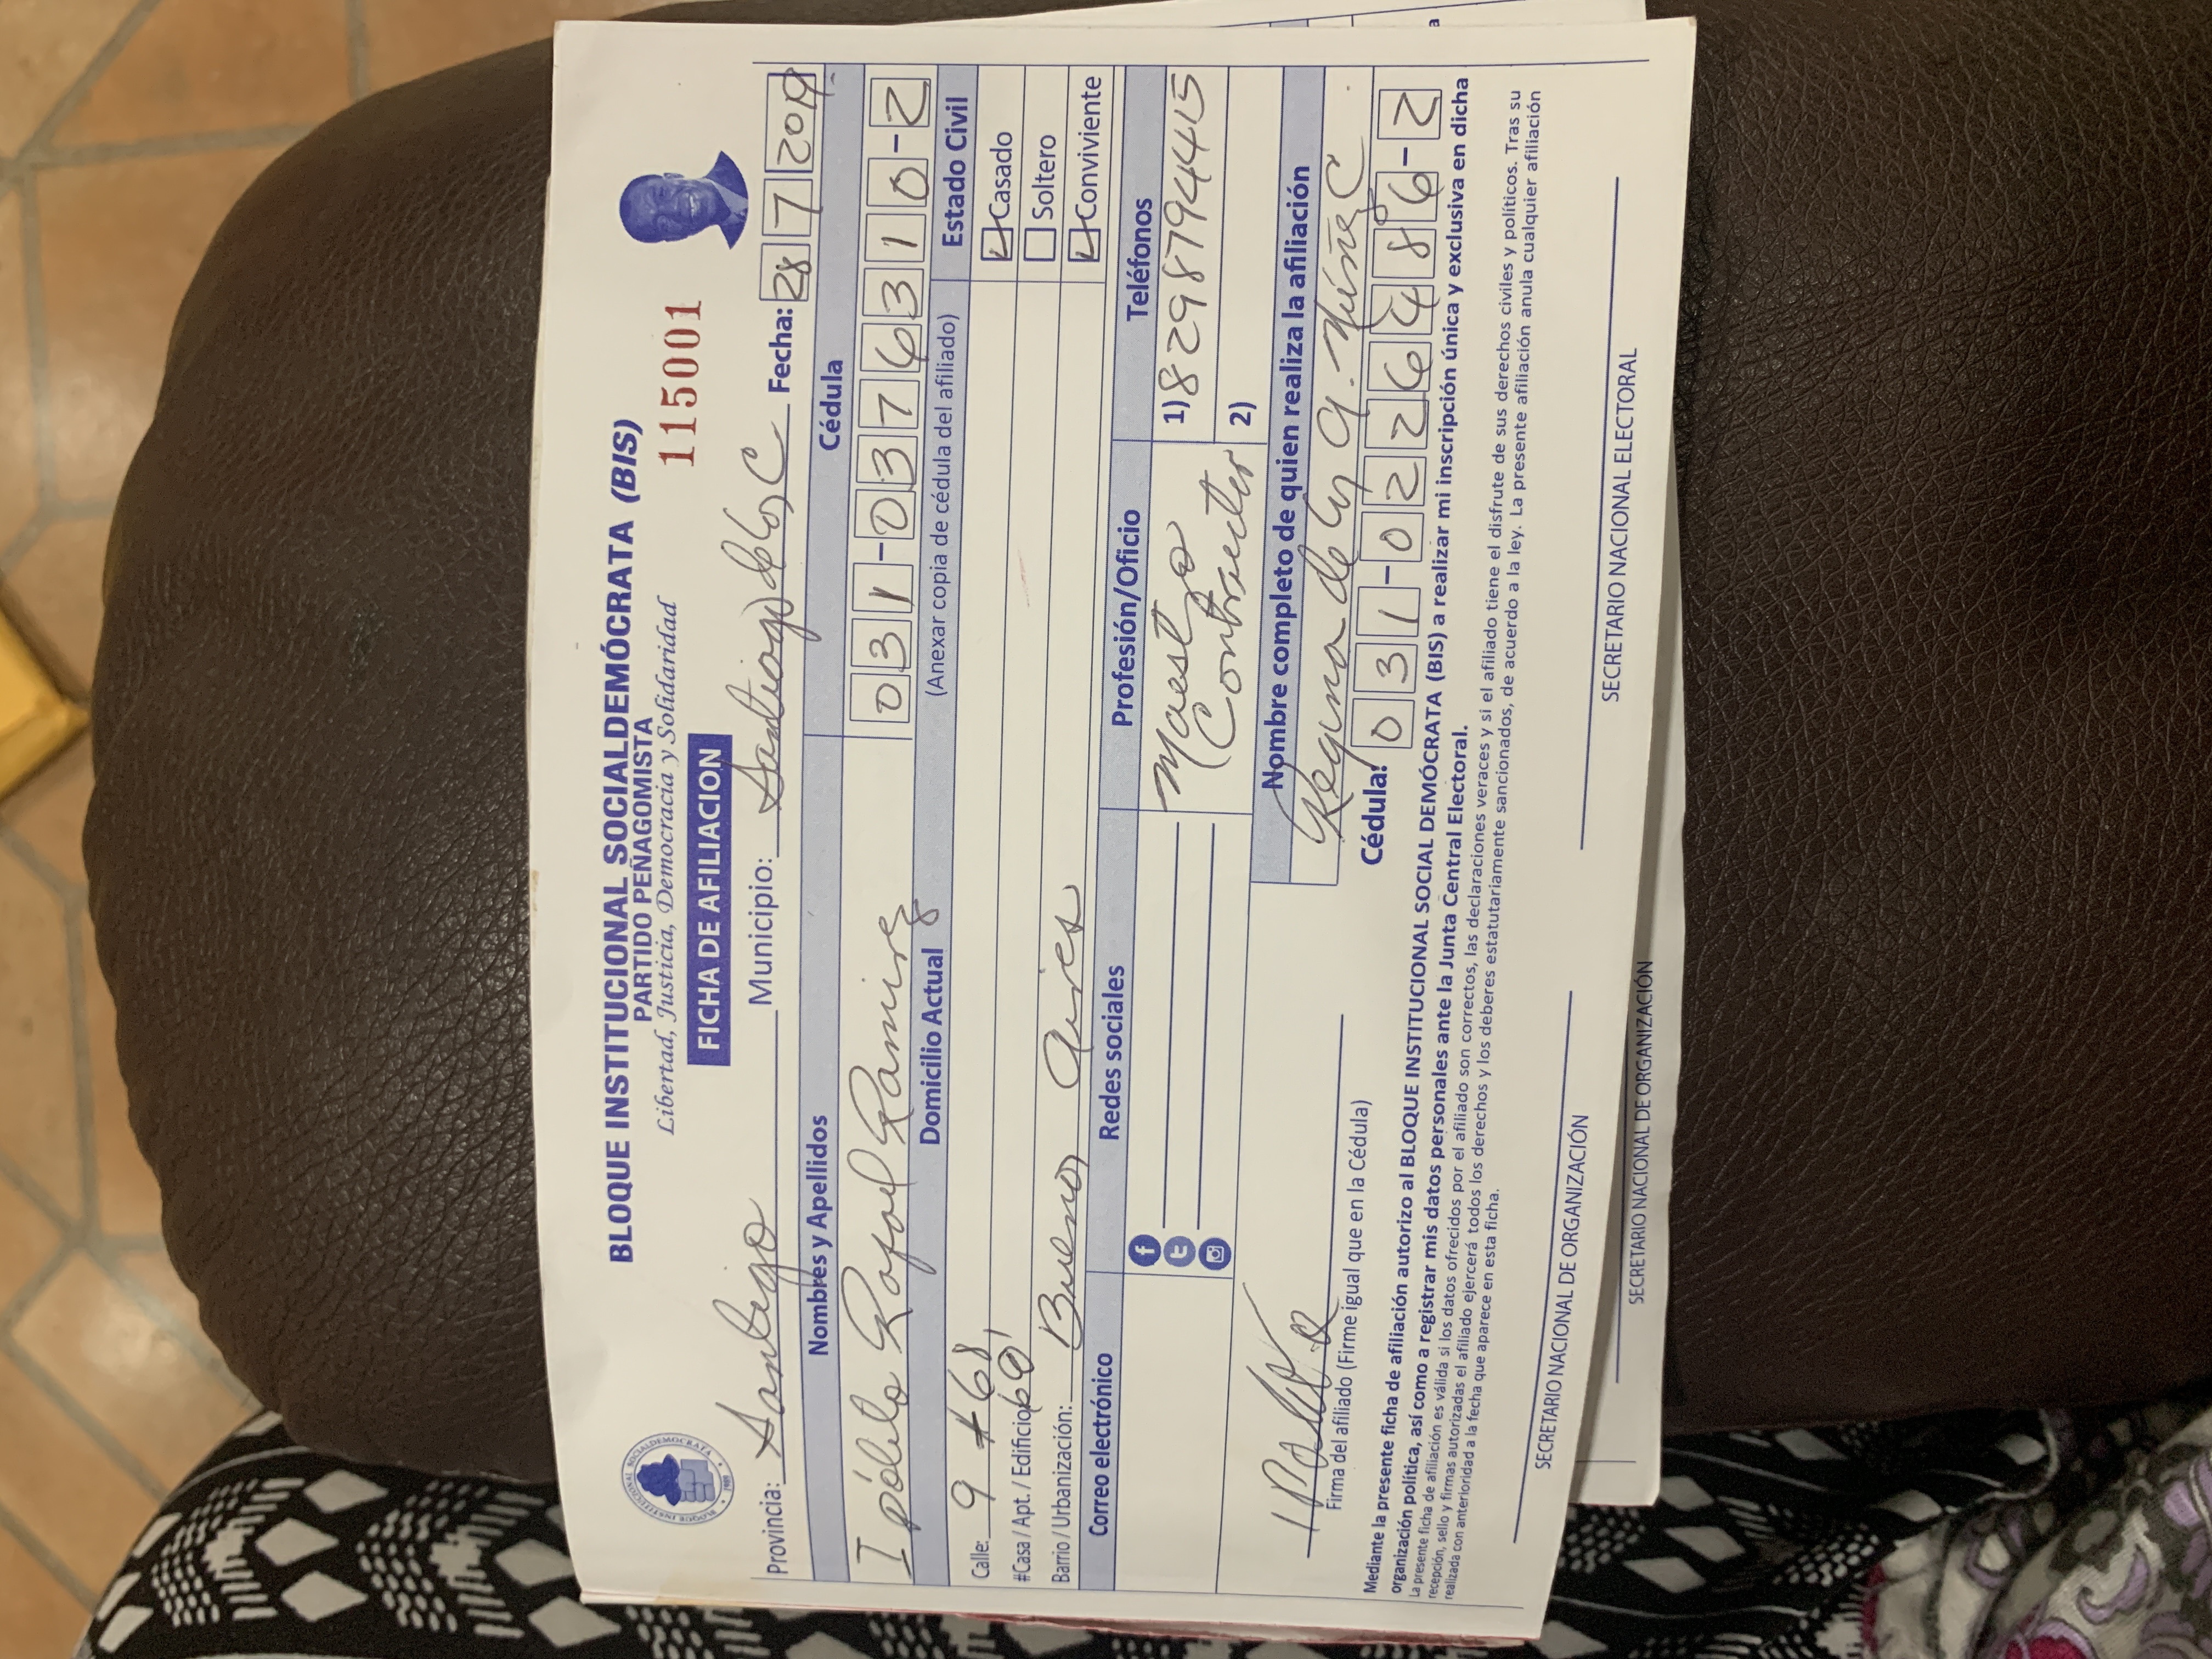 BLOQUE INSTITUCIONAL SOCIALDEMÓCRATA (BIS)
PARTIDO PEÑAGOMISTA
Libertad, Justicia, Democracia y Solidaridad
115001
FICHA DE AFILIACION
Provincia: Santiago Municipio: Santiago de los C Fecha: 28 7 2019
Nombres y Apellidos Cédula
Ipólito Rafael Ramirez 031-0376310-2
Domicilio Actual (Anexar copia de cédula del afiliado) Estado Civil
Calle: 9 #68 Casado
#Casa / Apt. / Edificio Soltero
Barrio / Urbanización: Buenos Aires Conviviente
Correo electrónico Redes sociales Profesión/Oficio Teléfonos
Maestro 1) 8298794415
Contructer 2)
Nombre completo de quien realiza la afiliación
Regina de los A. Núñez C
Cédula: 031-0226486-2
Firma del afiliado (Firme igual que en la Cédula)
Mediante la presente ficha de afiliación autorizo al BLOQUE INSTITUCIONAL SOCIAL DEMÓCRATA (BIS) a realizar mi inscripción única y exclusiva en dicha
organización política, así como a registrar mis datos personales ante la Junta Central Electoral.
La presente ficha de afiliación es válida si los datos ofrecidos por el afiliado son correctos, las declaraciones veraces y si el afiliado tiene el disfrute de sus derechos civiles y políticos. Tras su
recepción, sello y firmas autorizadas el afiliado ejercerá todos los derechos y los deberes estatutariamente sancionados, de acuerdo a la ley. La presente afiliación anula cualquier afiliación
realizada con anterioridad a la fecha que aparece en esta ficha.
SECRETARIO NACIONAL DE ORGANIZACIÓN SECRETARIO NACIONAL ELECTORAL
SECRETARIO NACIONAL DE ORGANIZACIÓN